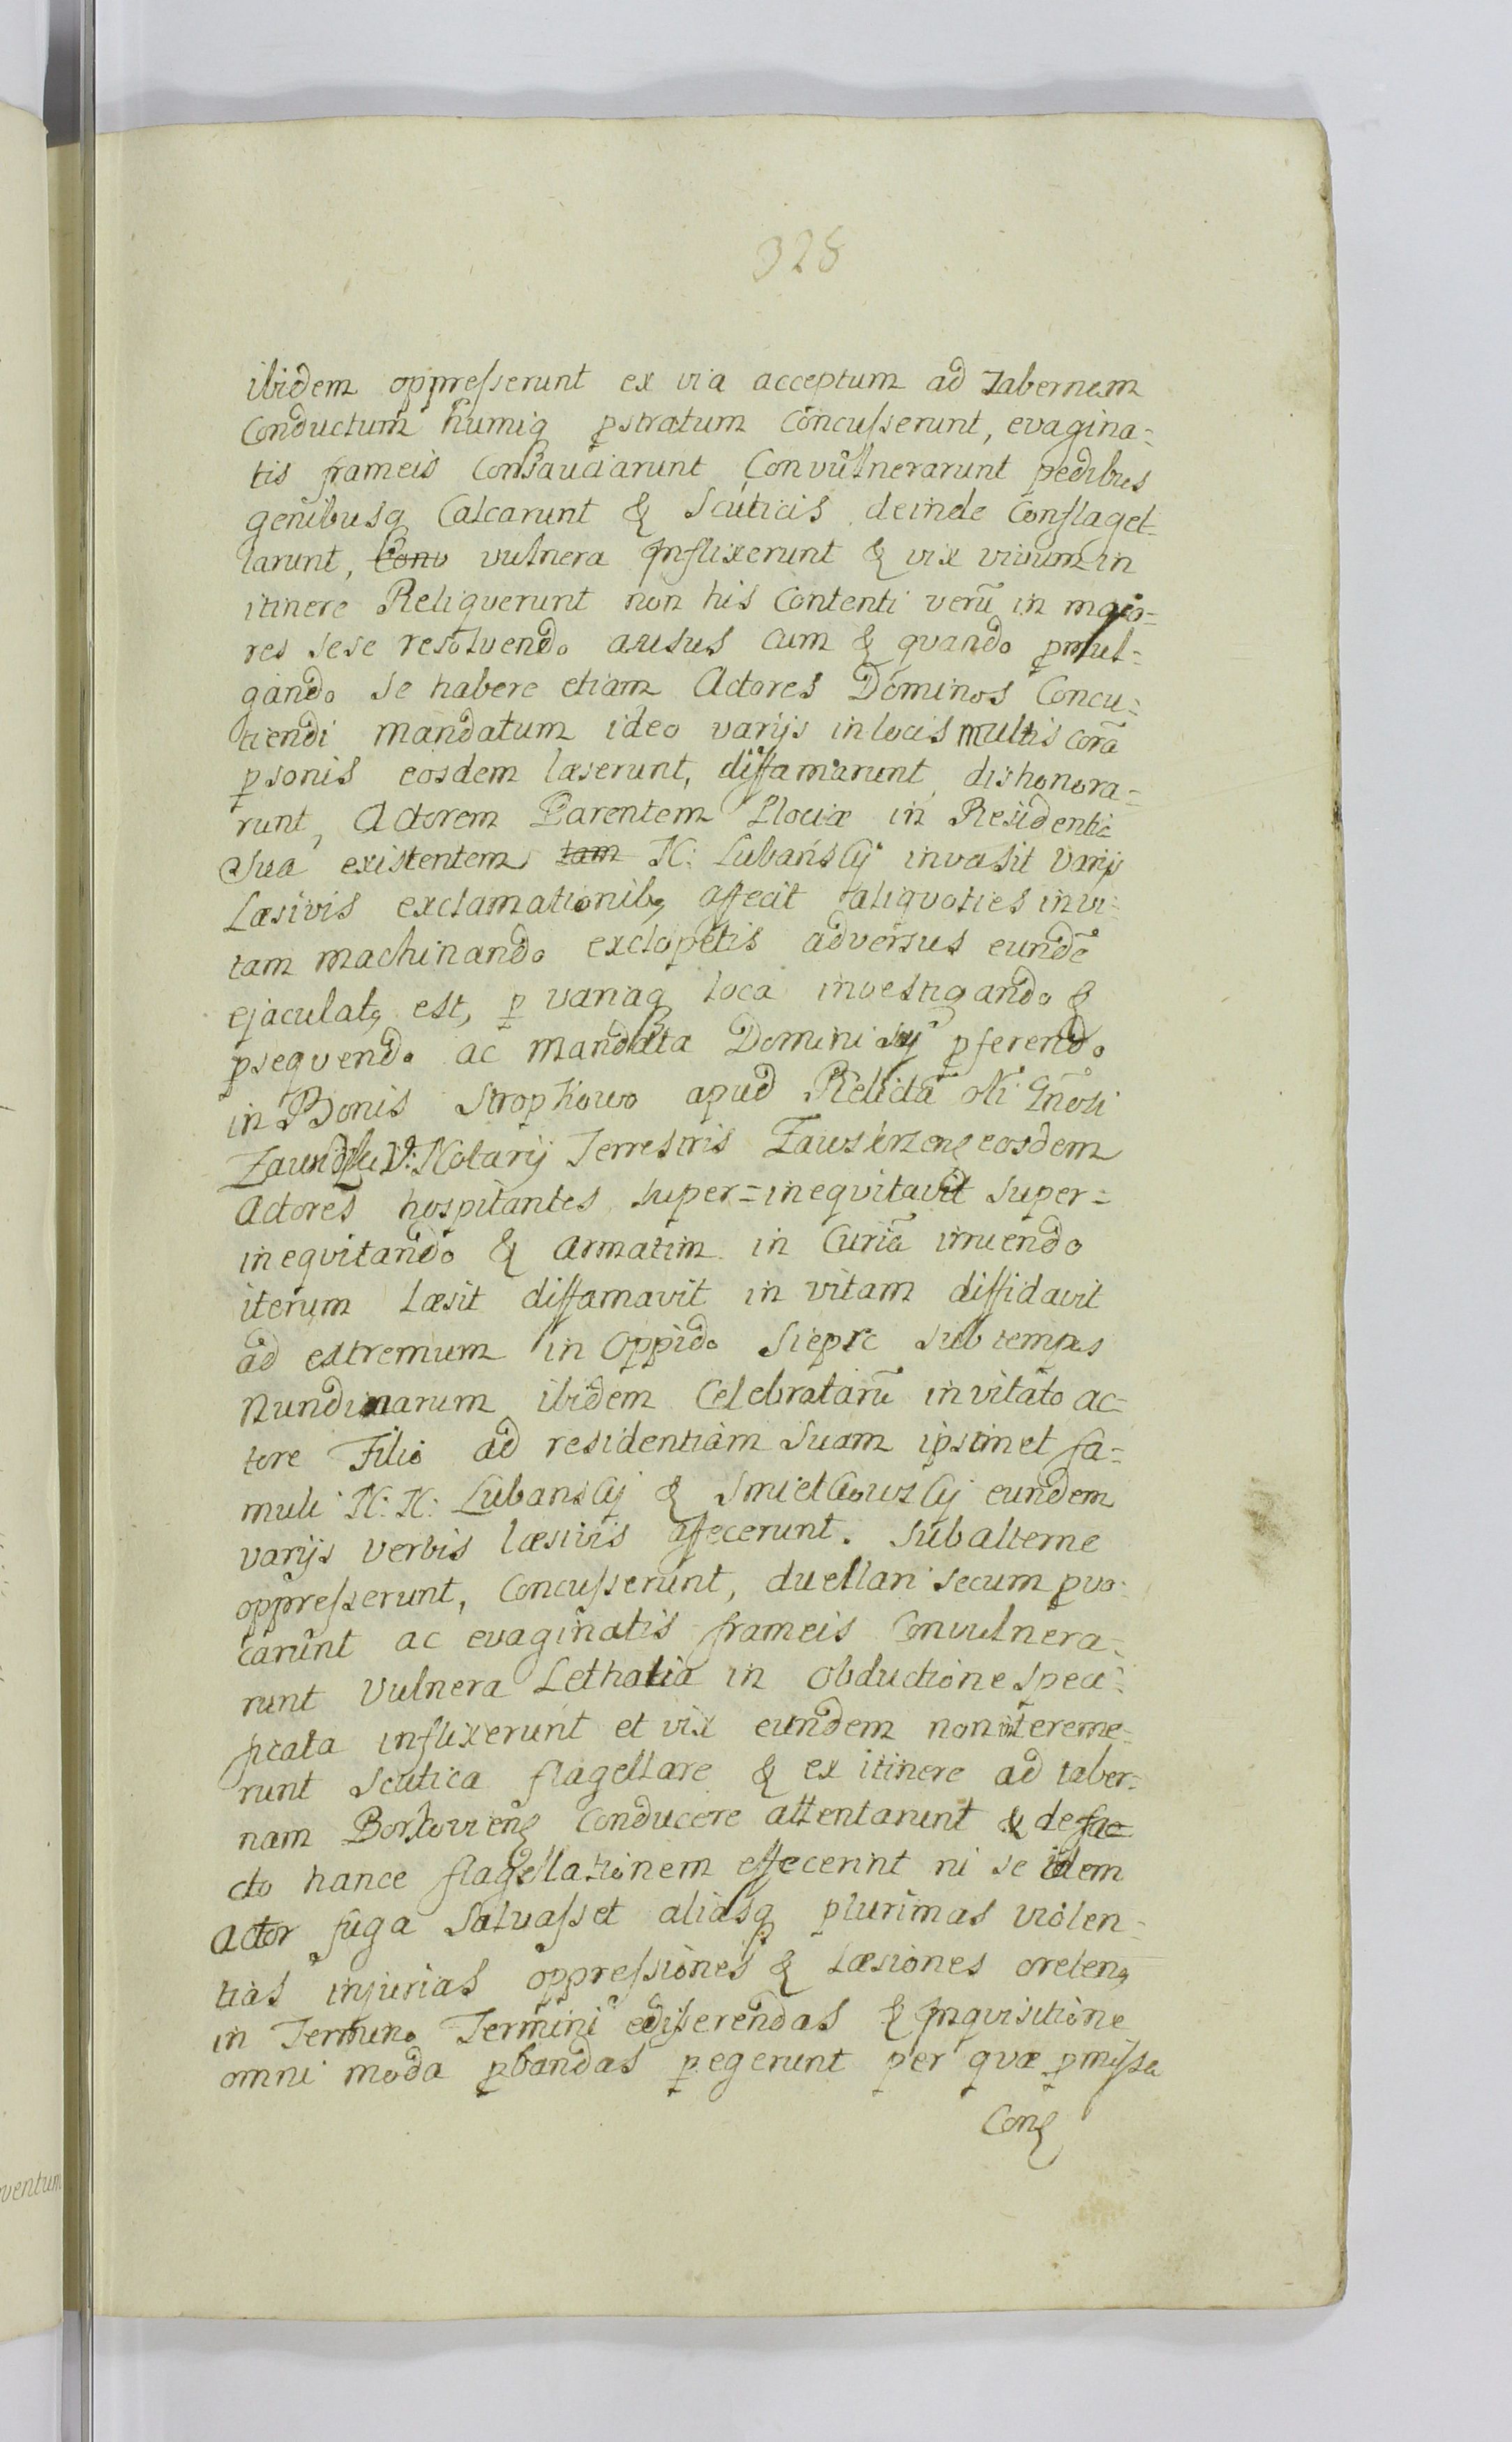 328
ibidem oppresserunt ex via acceptum ad Tabernam
Conductum humiq pstratum Concusserunt, evagina=
tis frameis Consauciarunt Convulnerarunt pedibus
genibusq Calcarunt & Scuticis deinde Conflagel
larunt, Conv vulnera Inflixerunt & vix vivum in
itinere Reliqverunt non his Contenti verũ in majo=
res sese resolvendo ausus cum & qvando pmul=
gando se habere etiam Actores Dominos Concu=
tiendi mandatum ideo varijs in locis multis corã
psonis eosdem læserunt, diffamarunt dishonora=
runt, Actorem Parentem Plociæ in Residentia
Sua existentem tam N: Lubański invasit varijs
Læsivis exclamationib9 affecit aliqvoties in vi=
tam machinando exclopetis adversus eundẽ
ejaculat9 est, p variaq loca investigando &
pseqvendo ac mandata Domini sui pferendo
in Bonis Stropkowo apud Relictã olĩ Gñosi
Notarij Terrestris Zawskrzens eosdem
Actores hospitantes super=ineqvitavit super=
ineqvitando & armatim in Curiã irruendo
iterum læsit diffamavit in vitam diffidavit
ad extremum in Oppido Sieprc sub tempus
Nundinarum ibidem Celebratarũ invitato ac=
tore Filio ad residentiam Suam ipsimet fa=
muli N: N: Lubanscij & Smielkowscij eundem
varijs verbis læsivis affecerunt. Subalterne
oppresserunt, Concusserunt, duellari secum pvo=
carunt ac evaginatis frameis Convulnera=
runt Vulnera Lethalia in obductione speci=
ficata inflixerunt et vix eundem non intereme=
runt scutica flagellare & ex itinere ad taber=
nam Borkoviens Conducere attentarunt & de fac
cto hance flagellationem effecerint ni se idem
Actor fuga Salvasset aliasq plurimas violen=
tias injurias oppressiones & læsiones oreten9
in Termino Termini edisserendas & Inqvisitione
omni moda pbandas pegerunt per qvæ pmissa
Cons
ventum